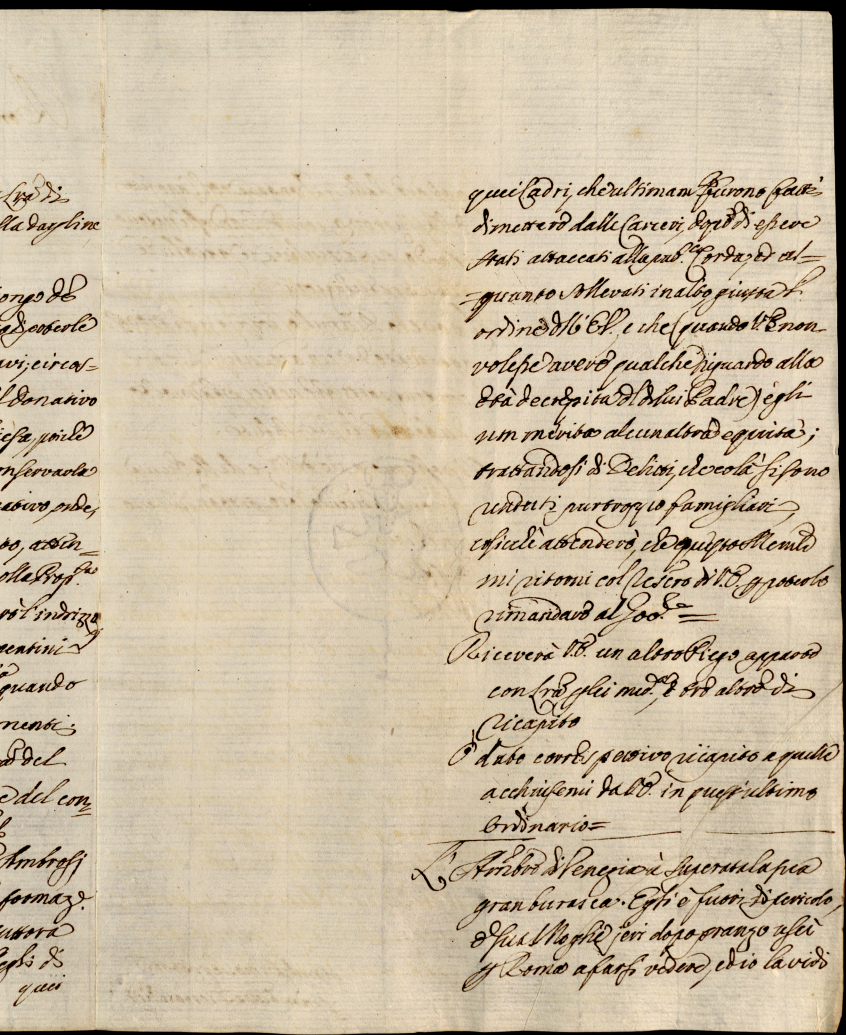 Lra di
lla dagline
longo del
di poterle
avi; circos=
il donativo
iesa, poiche
onservarla
cativo, onde,
to, atten=
olla Prop.ta
rò l'indrizzo
mentini
quando
menti;
del
e del con=
Ambrosj
formaz.e
tuttora
egli di
quei
quei Ladri, che ultimam.te furono fatti
dimettere dalle Carceri, dopo di essere
stati attaccati alla pub.ca Corda, ed al=
=quanto sollevati in alto giusta l'
ordine di V.E., e che (quando V.E. non
volesse avere qualche riguardo alla
età decrepita del di lui Padre) egli
non merita alcun altra equità;
trattandosi di Delitti, che colà si sono
renduti purtroppo famigliari,
cosicchè attenderò, che questo Memle
mi ritorni col Rescro di V.E. p poterlo
rimandare al Gov.re =
Riceverà V.E. un altro Piego apparte
con Lra p lei med.a, e tre altre di
ricapito
O' dato corrispettivo ricapito a quelle
acchiusemi da V.E. in quest' ultimo
Ordinario=
L' Ambre di Venezia à superata la sua
gran burasca. Egli è fuori di pericolo,
e sua Moglie jeri dopo pranzo uscì
p Roma a farsi vedere, ed io la vidi